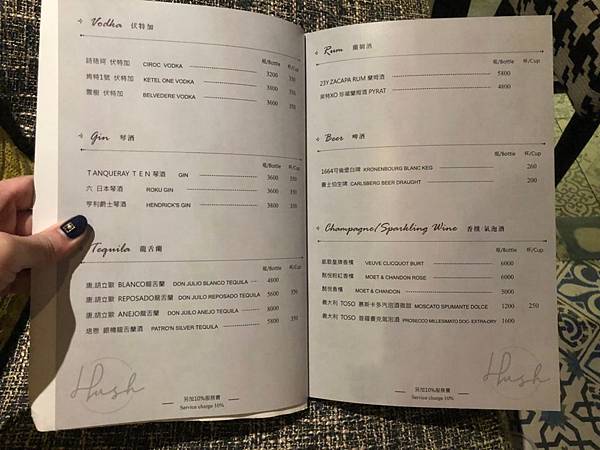 Vodka 伏特加
瓶/Bottle 杯/Cup
詩珞珂 伏特加 CIROC VODKA 3200 350
肯特1號 伏特加 KETEL ONE VODKA 3600 350
雪樹 伏特加 BELVEDERE VODKA 3600 350
Gin 琴酒
瓶/Bottle 杯/Cup
TANQUERAY TEN 琴酒 GIN 3600 350
六 日本琴酒 ROKU GIN 3600 350
亨利爵士琴酒 HENDRICK'S GIN 3800 350
Tequila 龍舌蘭
瓶/Bottle 杯/Cup
唐.胡立歐 BLANCO龍舌蘭 DON JULIO BLANCO TEQUILA 4800
唐.胡立歐 REPOSADO龍舌蘭 DON JULIO REPOSADO TEQUILA 5600 350
唐.胡立歐 ANEJO龍舌蘭 DON JULIO ANEJO TEQUILA 8000
培恩 銀樽龍舌蘭酒 PATRO'N SILVER TEQUILA 5800
Hush
另加10%服務費
Service charge 10%
Rum 蘭姆酒
瓶/Bottle 杯/Cup
23Y ZACAPA RUM 蘭姆酒 5800
XO 珍藏蘭姆酒 PYRAT 4800
Beer 啤酒
瓶/Bottle 杯/Cup
1664可倫堡白啤 KRONENBOURG BLANC KEG 260
嘉士伯生啤 CARLSBERG BEER DRAUGHT 200
Champagne/Sparkling Wine 香檳/氣泡酒
瓶/Bottle 杯/Cup
凱歌皇牌香檳 VEUVE CLICQUOT BURT 6000
酩悅粉紅香檳 MOET & CHANDON ROSE 6000
酩悅香檳 MOET & CHANDON 5000
義大利 TOSO 慕斯卡多汽泡酒微甜 MOSCATO SPUMANTE DOLCE 1200 250
義大利 TOSO 普羅賽克氣泡酒 PROSECCO MILLESIMATO DOC- EXTRA-DRY 1600
Hush
另加10%服務費
Service charge 10%